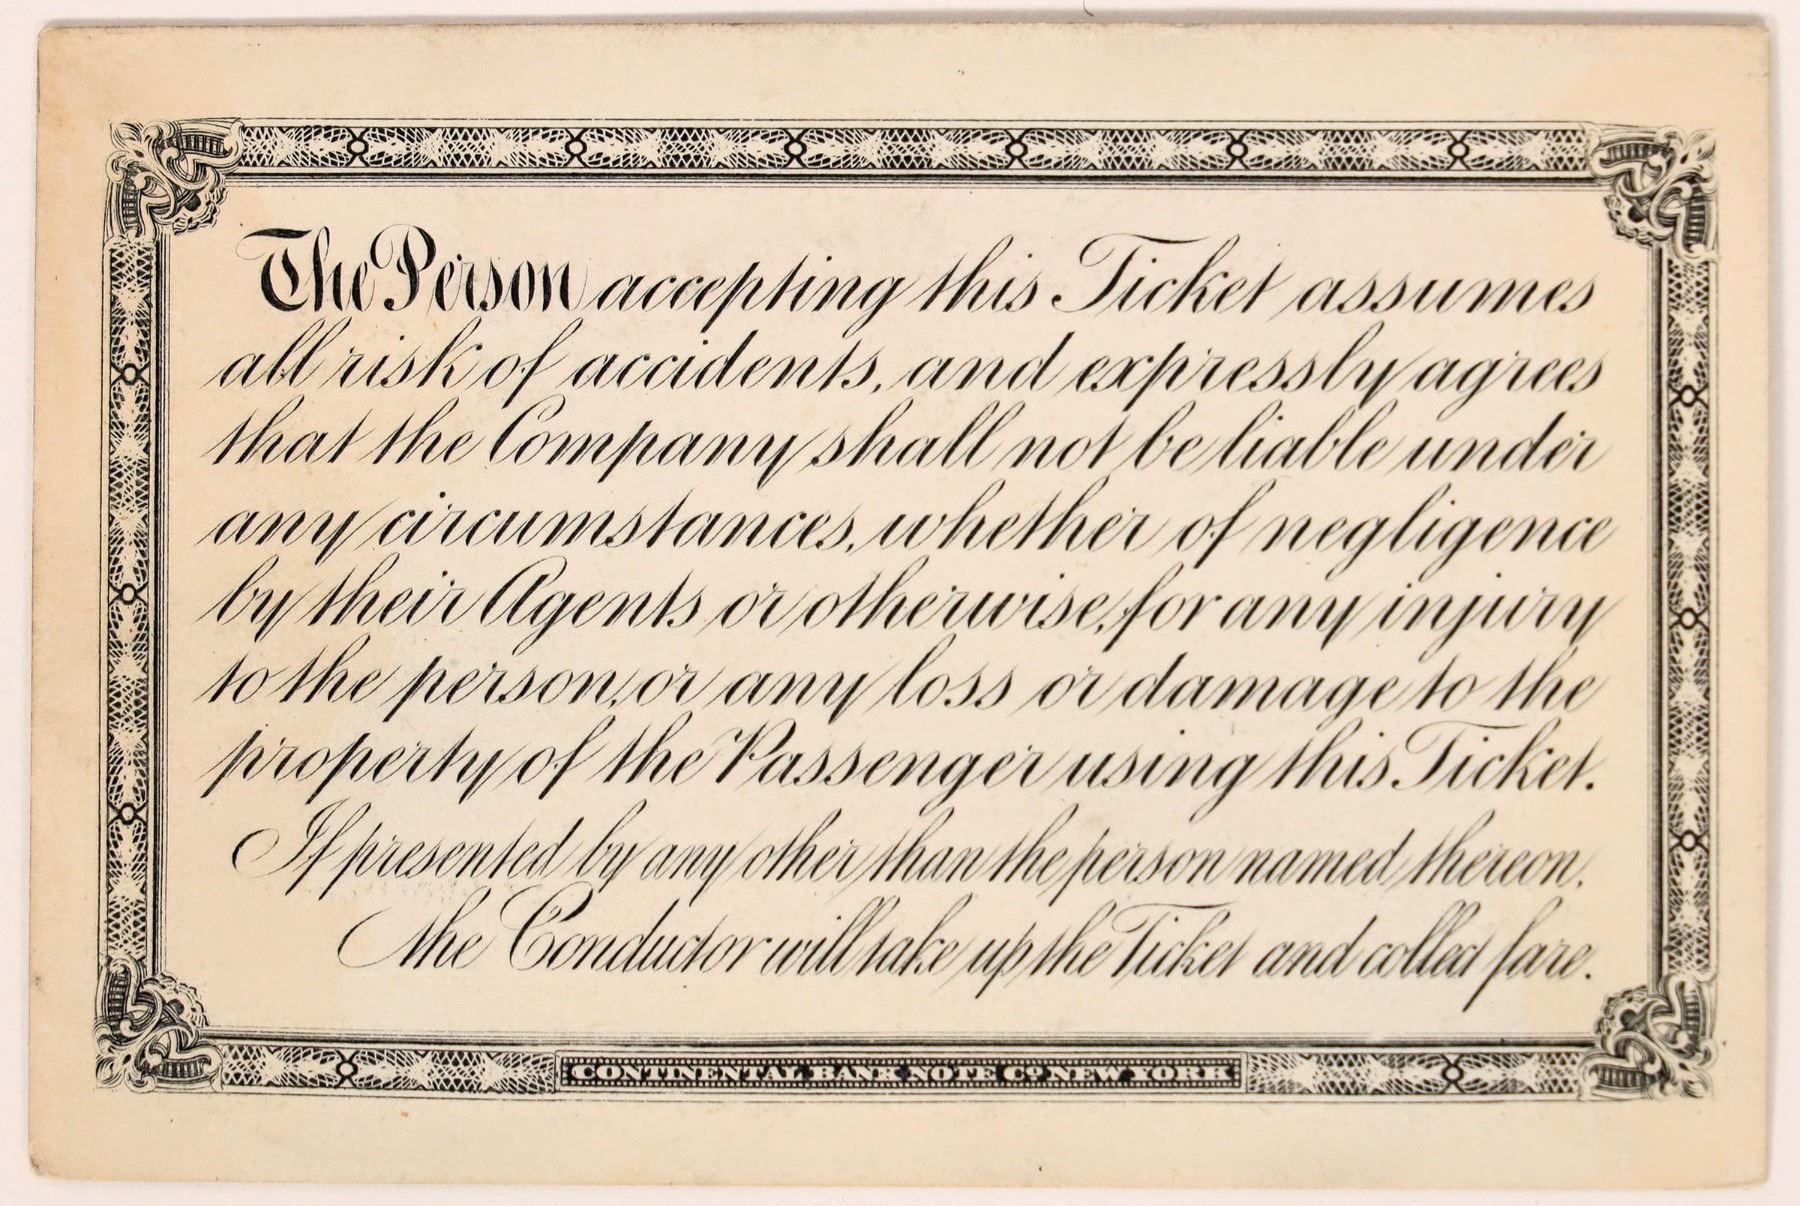 The Person accepting this Ticket assumes
all risk of accidents, and expressly agrees
that the Company shall not be liable under
any circumstances, whether of negligence
by their Agents or otherwise, for any injury
to the person, or any loss or damage to the
property of the Passenger using this Ticket.
If presented by any other than the person named thereon,
the Conductor will take up the Ticket and collect fare.
CONTINENTAL BANK NOTE Co NEW YORK